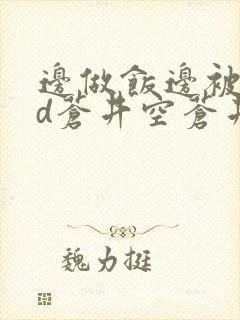 邊做飯邊被
d蒼井空蒼井
魏力挺